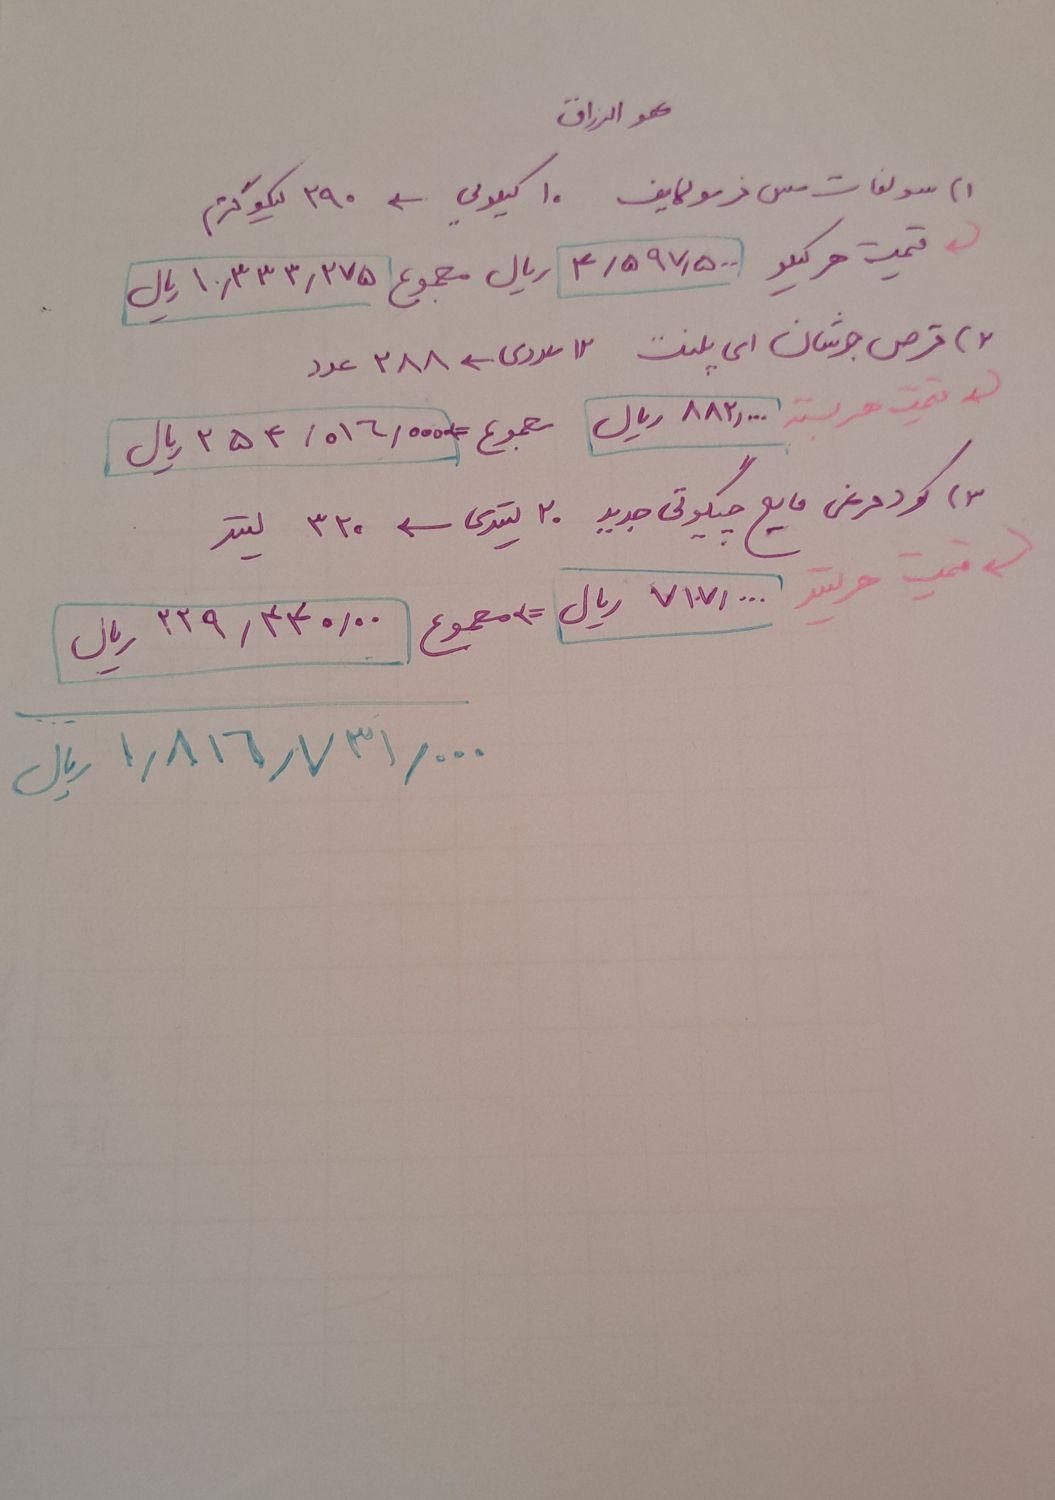 هو الرزاق
۱) سولفات مس فرمولایف ۱۰ کیلویی ← ۲۹۰ کیلوگرم
قیمت هر کیلو ۴/۵۹۷/۵۰۰ ریال مجموع ۱۰/۳۳۳/۲۷۵ ریال
۲) قرص جوشان ای پلنت ۱۲ عددی ← ۲۸۸ عدد
قیمت هر بسته ۸۸۲/۰۰۰ ریال مجموع ⇐ ۲۵۴/۰۱۶/۰۰۰ ریال
۳) کود مرغی مایع جیگوتی جدید ۲۰ لیتری ← ۳۲۰ لیتر
قیمت هر لیتر ۷۱۷/۰۰۰ ریال ⇐ مجموع ۲۲۹/۴۴۰/۰۰ ریال
۱/۸۱۶/۷۳۱/۰۰۰ ریال